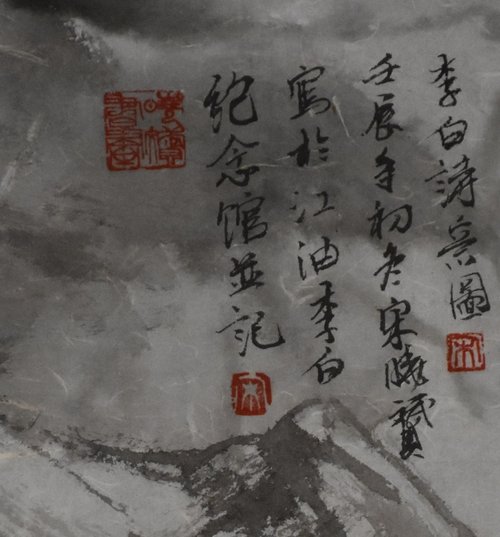 李白詩意圖
壬辰年初冬宋曉贇
寫於江油李白
紀念馆並記
宋
宋